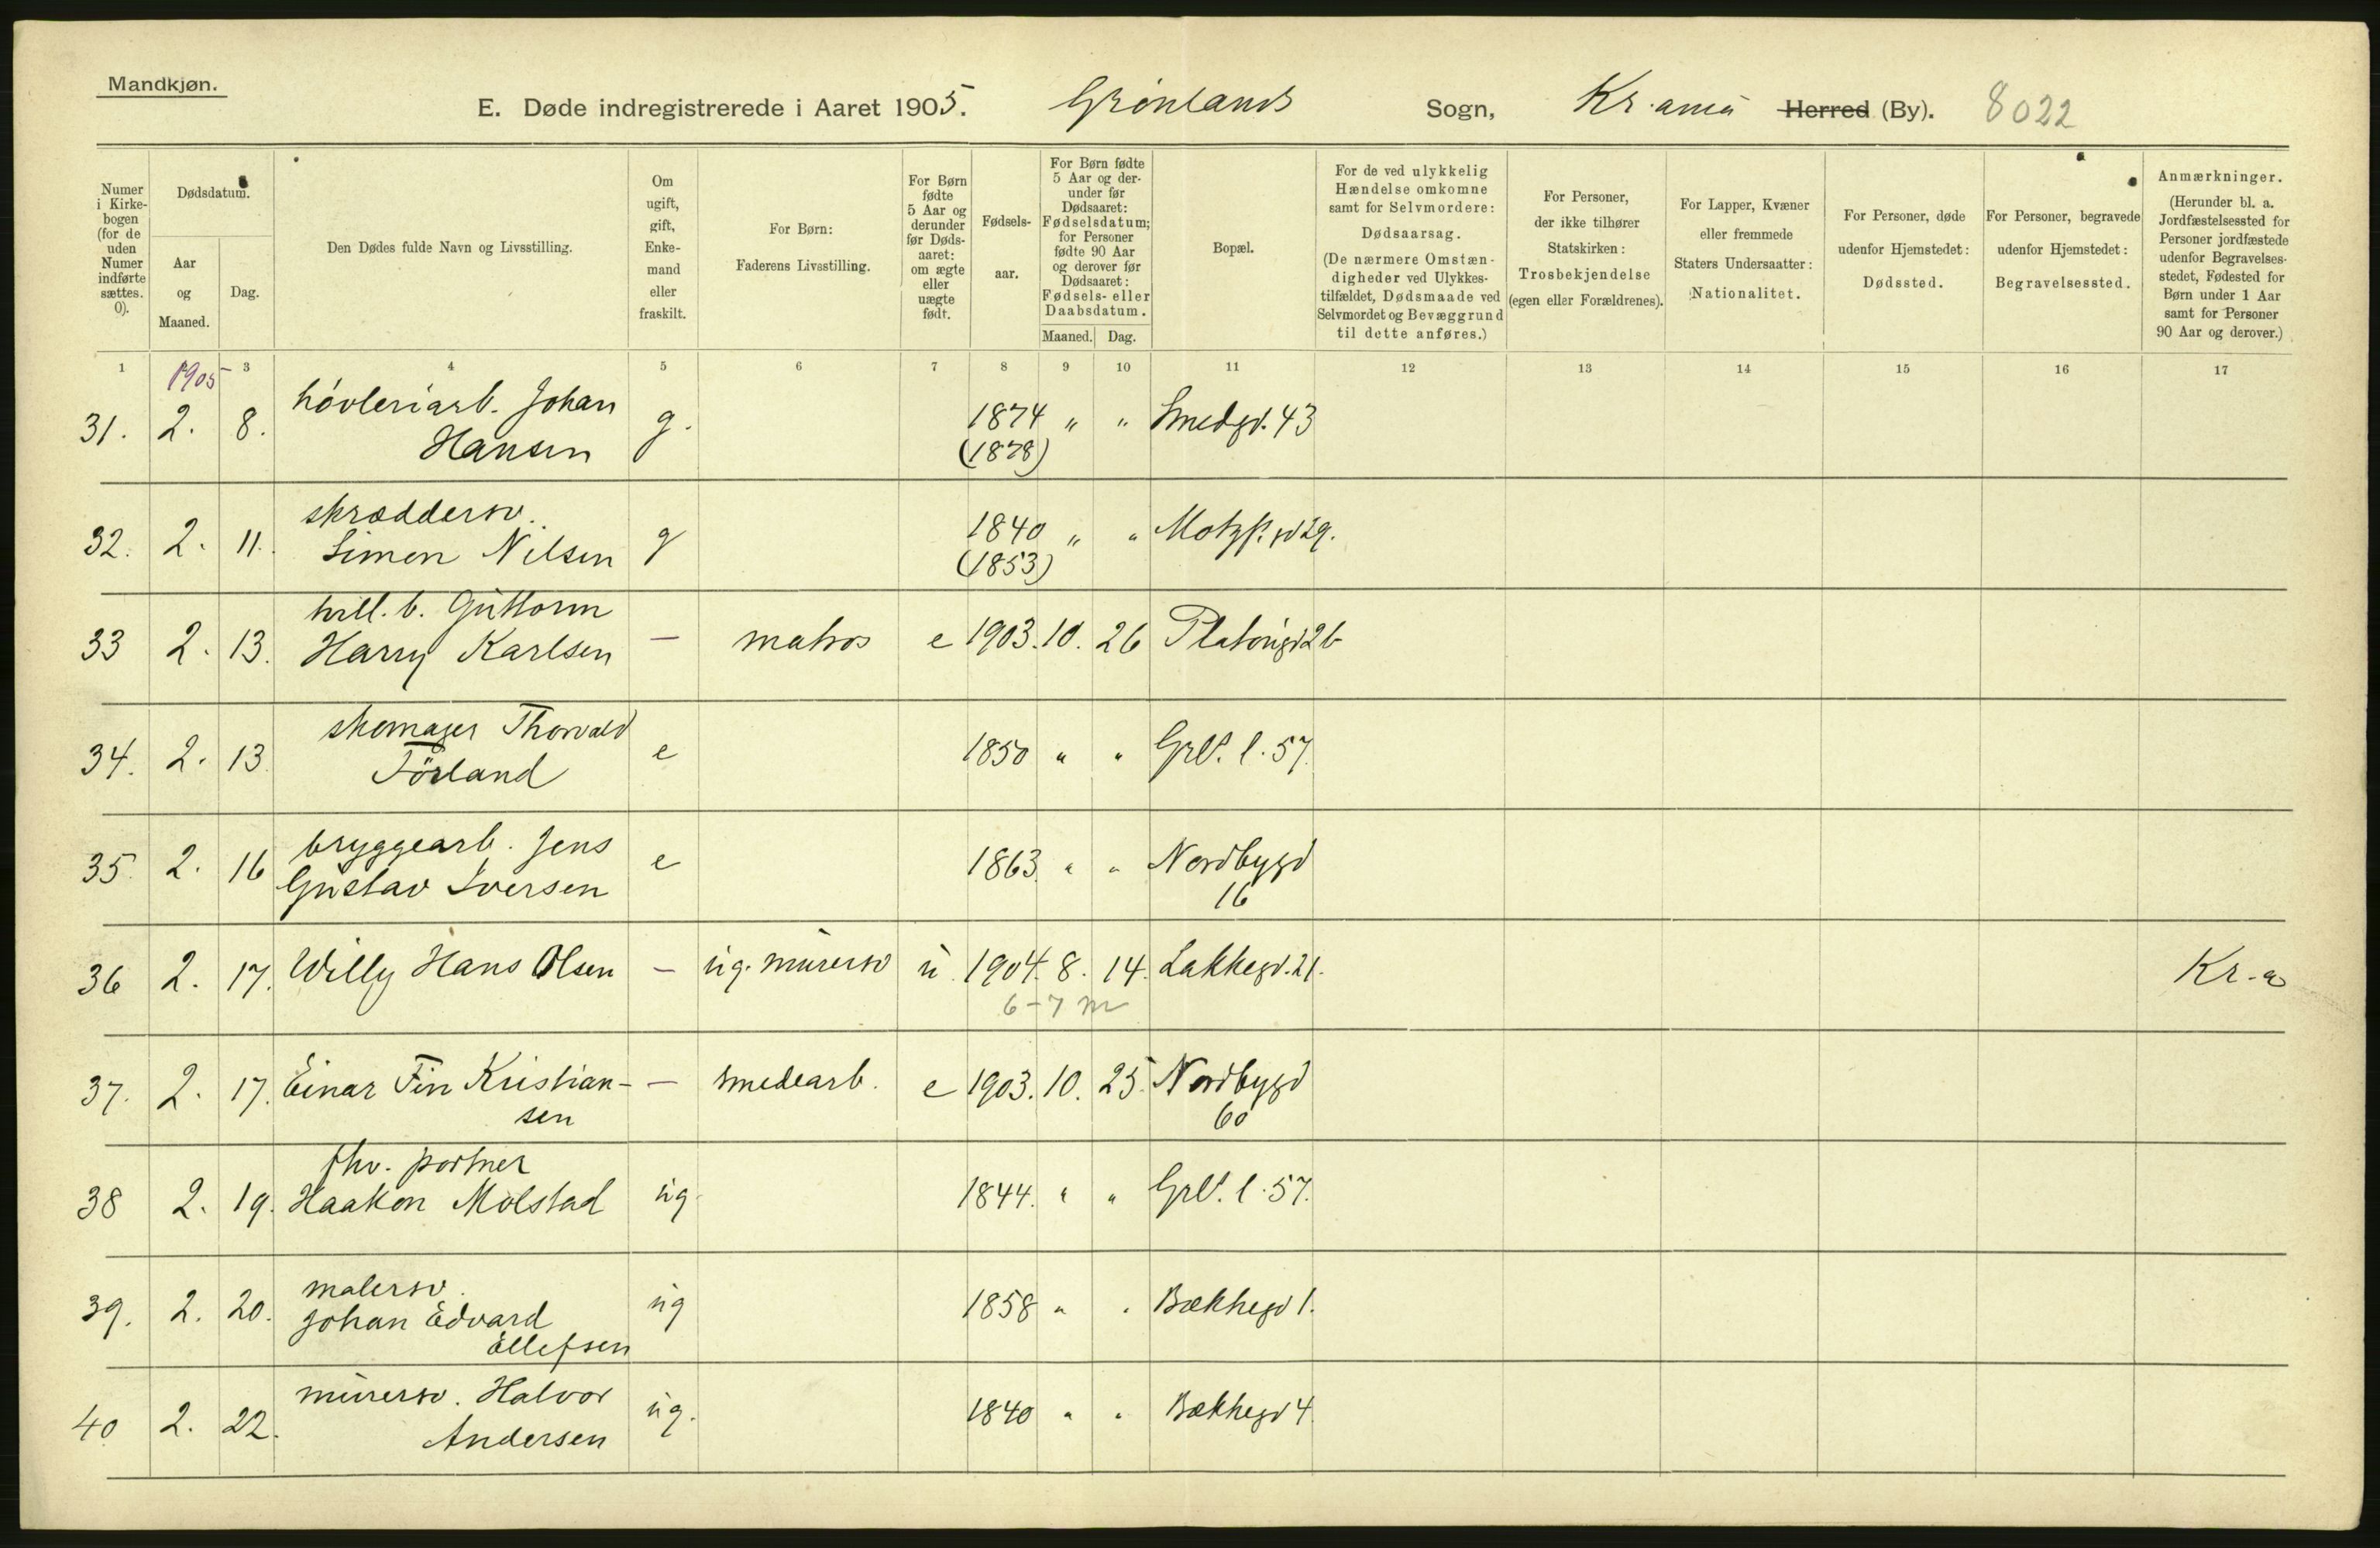 Mandkjøn.
E. Døde indregistrerede i Aaret 1905. Grønlands Sogn, Kr.ania Herred (By). 8022
Numer i Kirkebogen (for de uden Numer indførte sættes. 0).
Dødsdatum.
Aar og Maaned.
Dag.
Den Dødes fulde Navn og Livsstilling.
Om ugift, gift, Enkemand eller fraskilt.
For Børn: Faderens Livsstilling.
For Børn fødte 5 Aar og derunder før Dødsaaret: om ægte eller uægte født.
Fødselsaar.
For Børn fødte 5 Aar og derunder før Dødsaaret: Fødselsdatum; for Personer fødte 90 Aar og derover før Dødsaaret: Fødsels- eller Daabsdatum.
Maaned. Dag.
Bopæl.
For de ved ulykkelig Hændelse omkomne samt for Selvmordere: Dødsaarsag. (De nærmere Omstændigheder ved Ulykkestilfældet, Dødsmaade ved Selvmordet og Bevæggrund til dette anføres.)
For Personer, der ikke tilhører Statskirken: Trosbekjendelse (egen eller Forældrenes).
For Lapper, Kvæner eller fremmede Staters Undersaatter: Nationalitet.
For Personer, døde udenfor Hjemstedet: Dødssted.
For Personer, begravede udenfor Hjemstedet: Begravelsessted.
Anmærkninger. (Herunder bl. a. Jordfæstelsessted for Personer jordfæstede udenfor Begravelsesstedet, Fødested for Børn under 1 Aar samt for Personer 90 Aar og derover.)
1 3 4 5 6 7 8 9 10 11 12 13 14 15 16 17
1905
høvleriarb. Johan
31. 2. 8. Hansen g. 1874 " " Smedgd. 43
(1878)
skræddersv.
32. 2. 11. Simon Nilsen g 1840 " " 29.
(1853)
tvill. b. Guttorm
33 2. 13. Harry Karlsen — matros e 1903. 10. 26 Platougd 26
skomager Thorvald
34. 2. 13. Törland e 1850 " " Grl. l. 57.
bryggearb. Jens
35. 2. 16 Gustav Iversen e 1863. " " Nordbygd
16
36 2. 17. Willy Hans Olsen — ug. murersv u. 1904. 8. 14. Lakkegd. 21. Kr.-a
6-7 m
37. 2. 17. Einar Fin Kristian- — smedearb. e 1903. 10. 25. Nordbygd
sen 60
fhv. portner
38 2. 19. Haakon Molstad ug. 1844. " " Grl. l. 57.
malersv.
39. 2. 20. Johan Edvard ug 1858 " " Bækkegd 1.
Ellefsen
murersv. Halvor
40 2. 22. Andersen ug. 1840 " " Bækkegd 4.